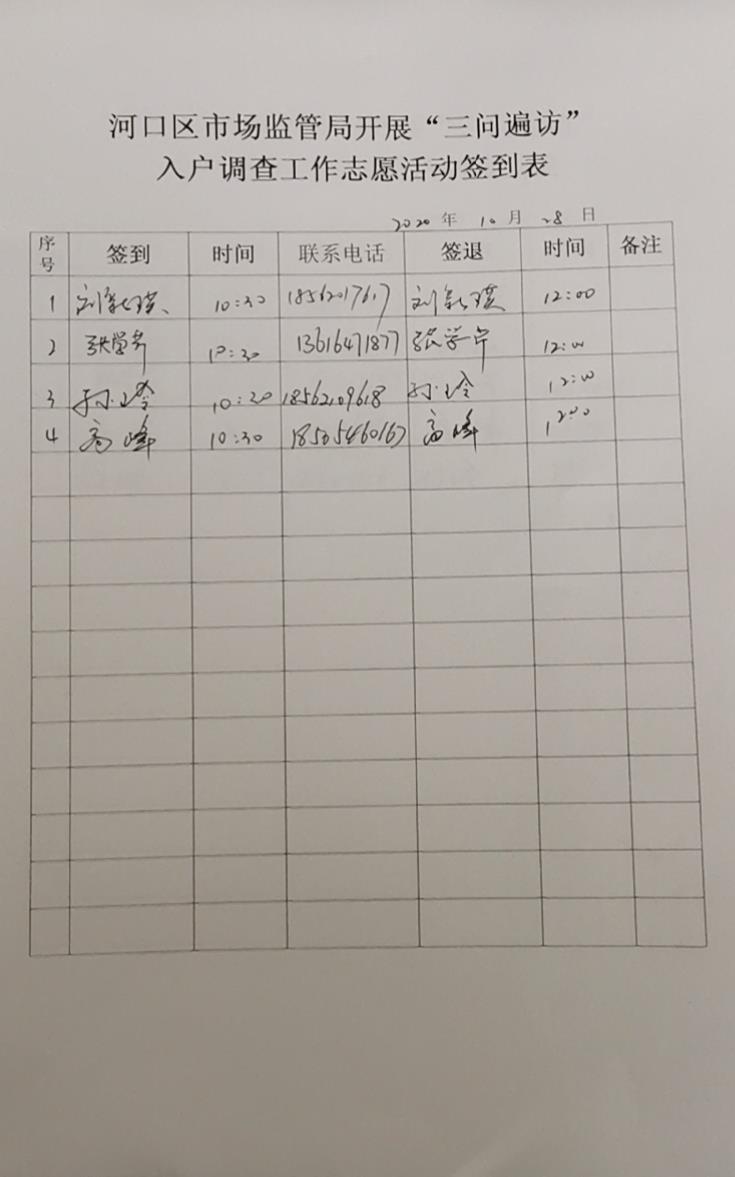 河口区市场监管局开展“三问遍访”
入户调查工作志愿活动签到表
2020 年 10 月 28 日
序号 签到 时间 联系电话 签退 时间 备注
1 刘 10:30 刘 12:00
2 张学 10:30 13616471877 张学 12:00
3 孙玲 10:30 孙玲 12:00
4 高峰 10:30 18505460167 高峰 1200